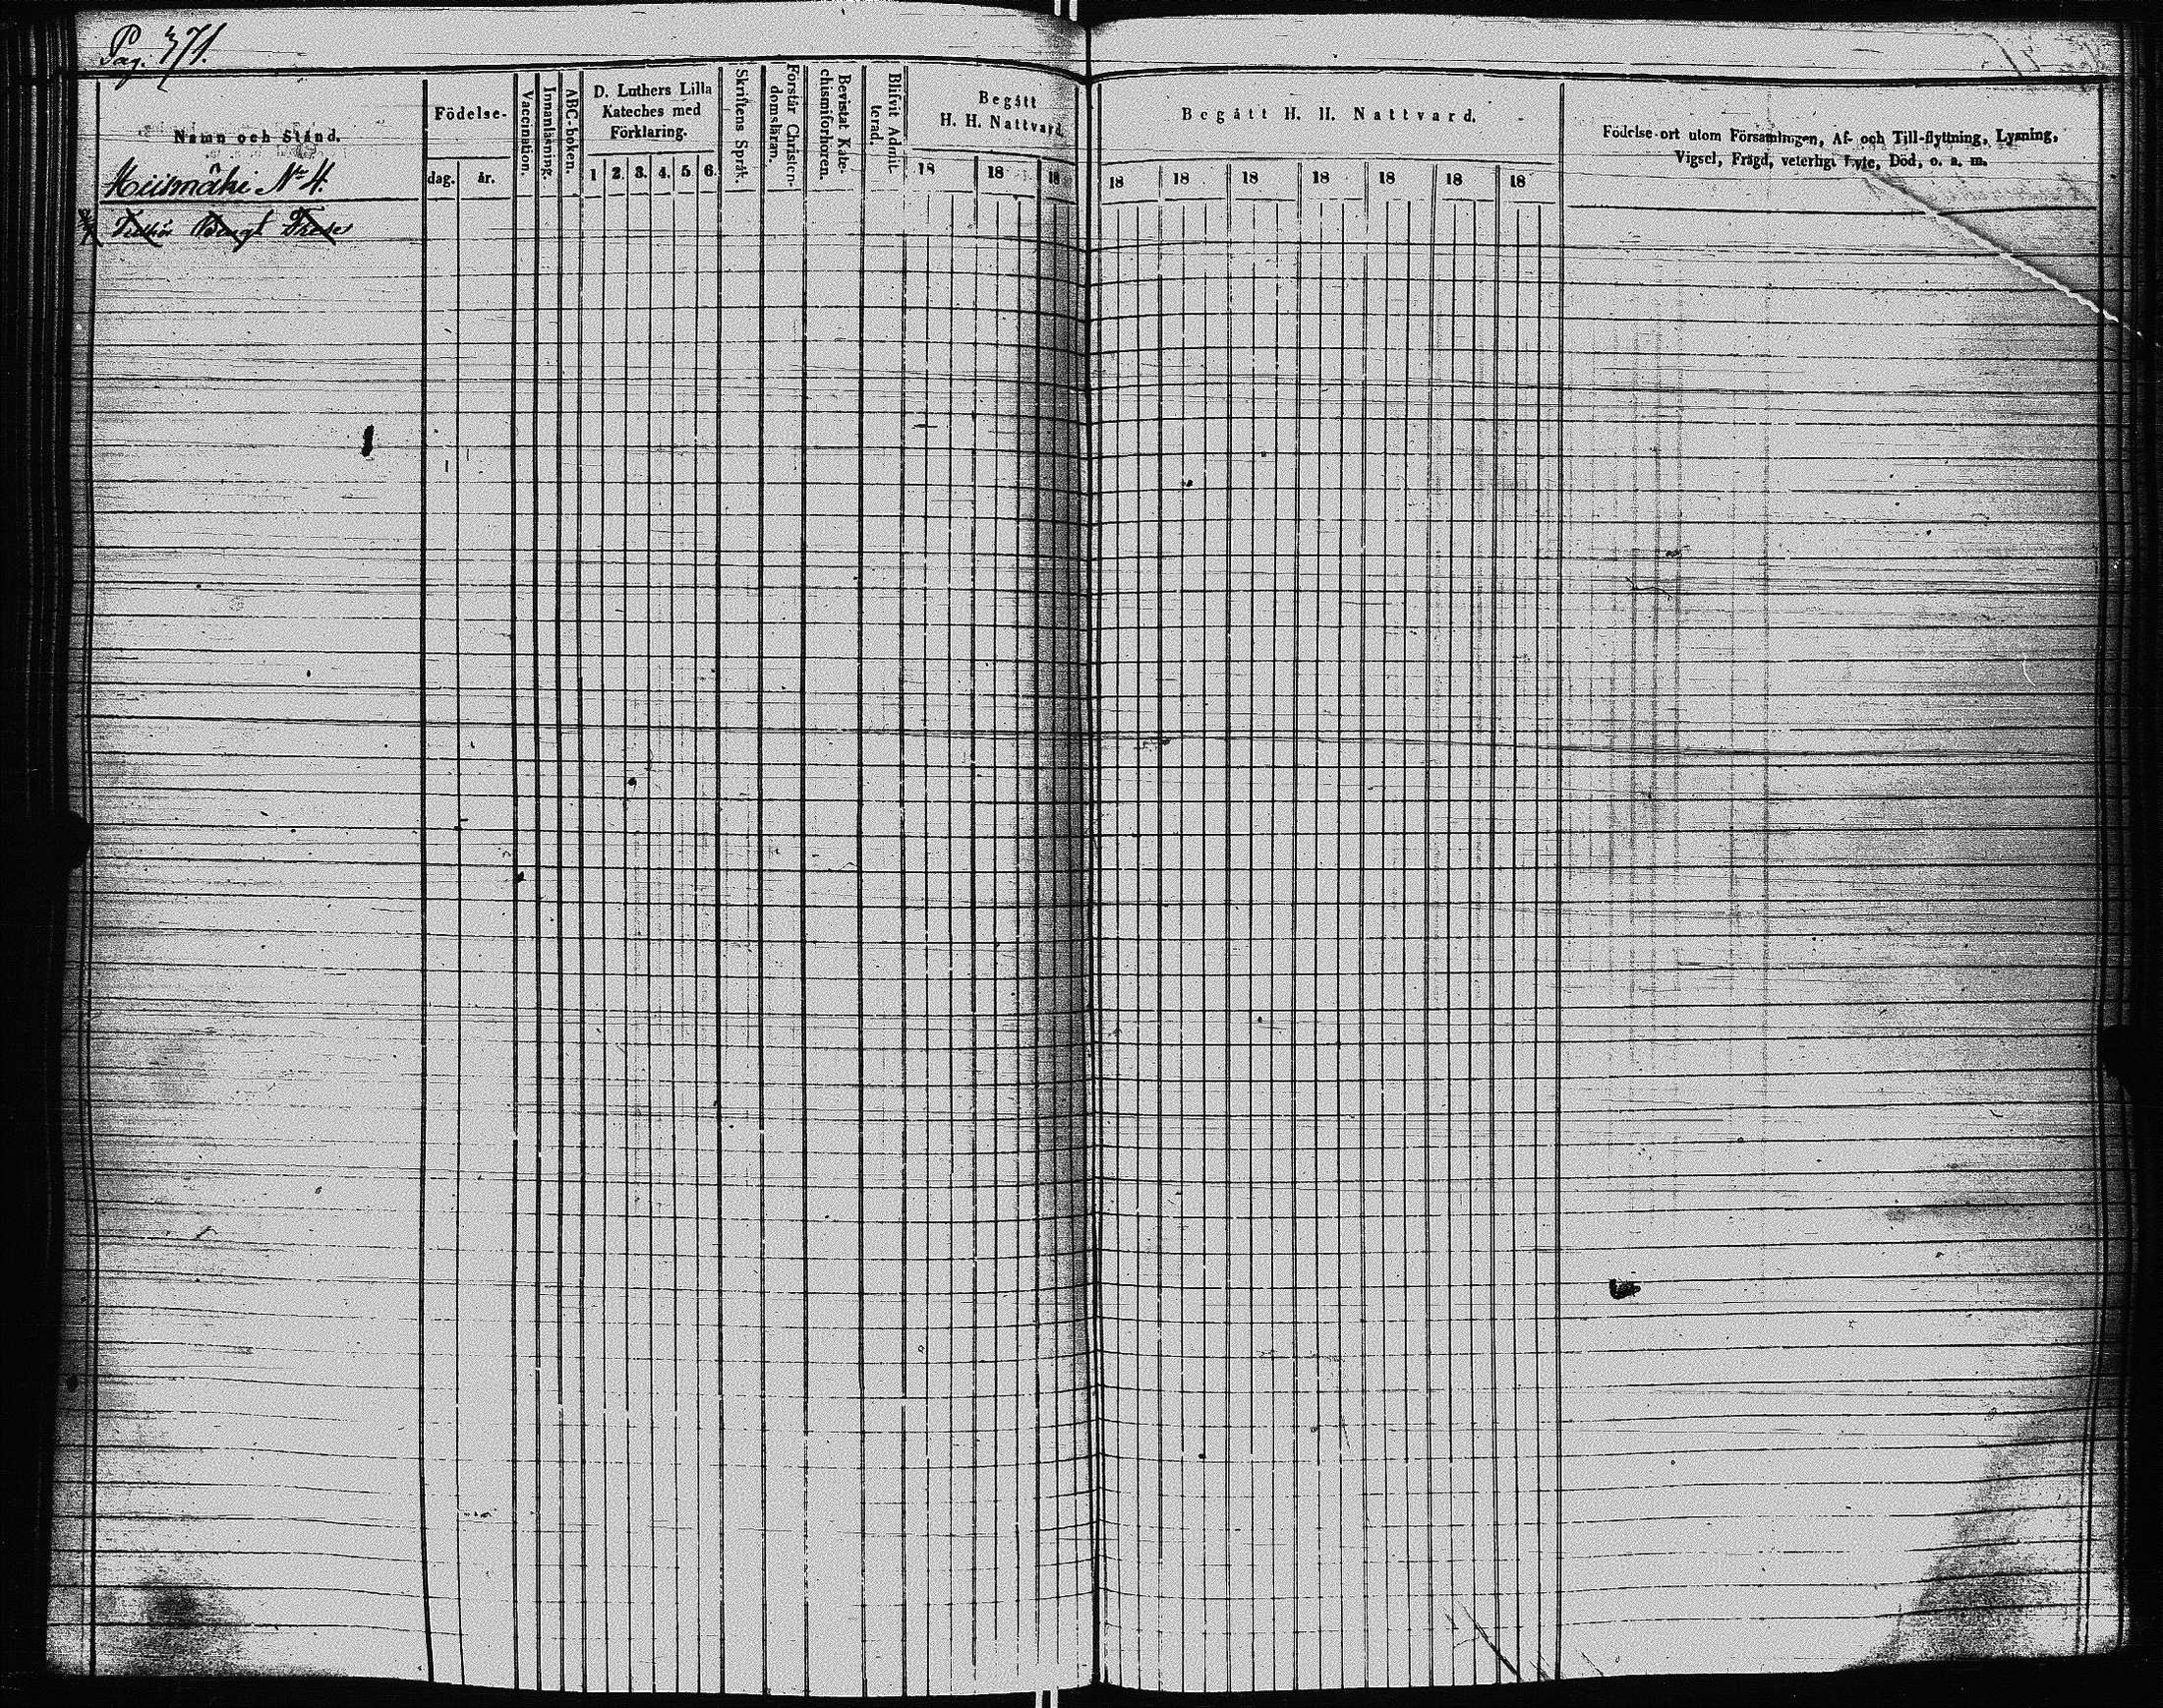 Pag. 371.
Namn och Stånd.
Hiismäki No 4.
Bengt
Födelse-
dag. år.
Vaccination.
Innanläsning.
ABC-boken.
D. Luthers Lilla
Kateches med
Förklaring.
1 2. 3. 4. 5 6.
Skriftens Språk.
Förstår Christen-
domsläran.
Bevistat Kate-
chismiförhören.
Blifvit Admit-
terad.
Begått
H. H. Nattvard.
18 18 18
Begått H. H. Nattvard.
18 18 18 18 18 18 18
Födelse-ort utom Församlingen, Af- och Till-flyttning, Lysning,
Vigsel, Frägd, veterligt Lyte, Död, o. s. m.